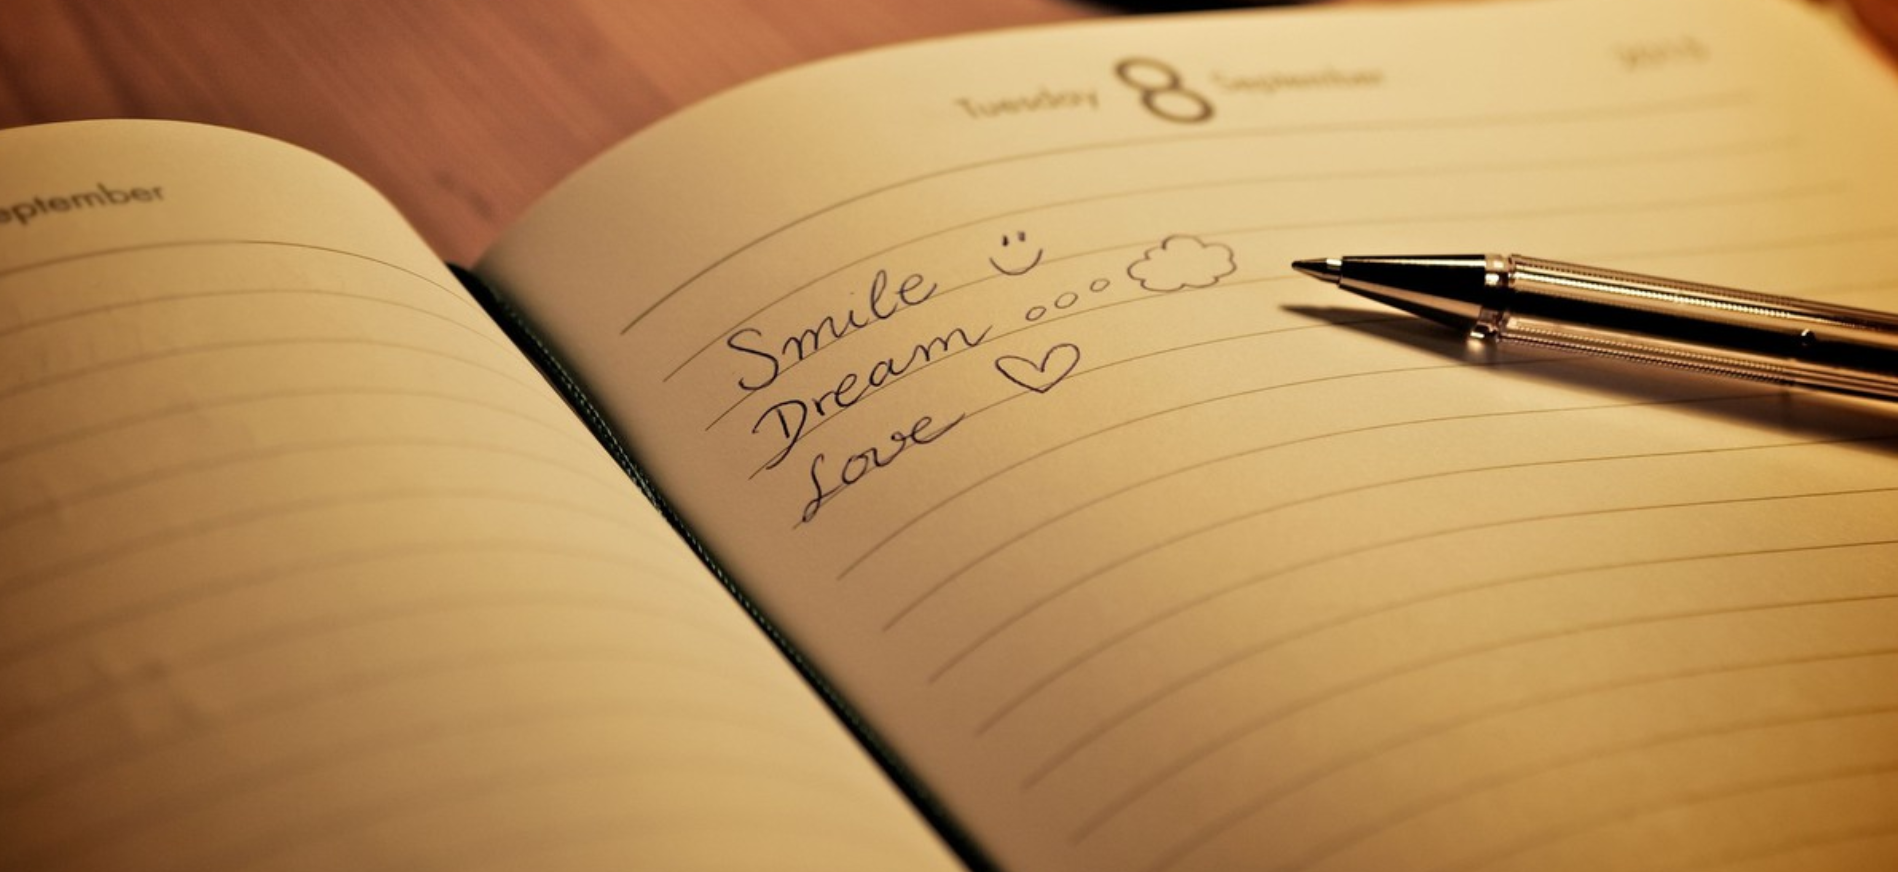 eptember
Tuesday 8 September
Smile
Dream
Love